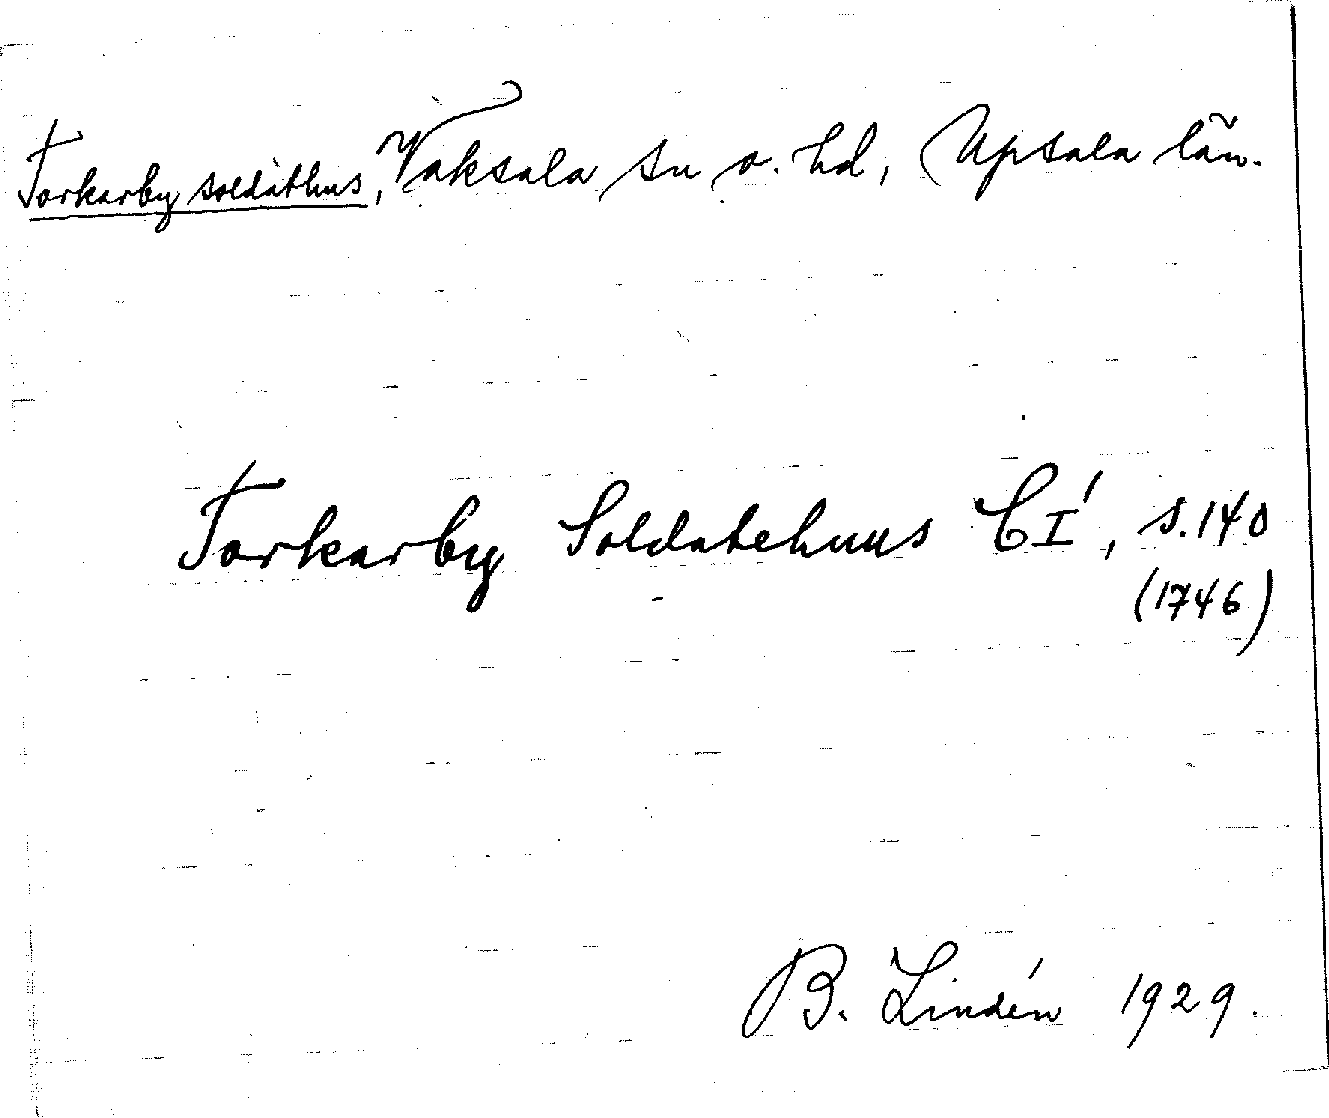 Torkarby soldathus, Vaksala sn o. hd, Upsala län.
Torkarby Soldatehuus CI, s. 140
(1746)
B. Lindén 1929.